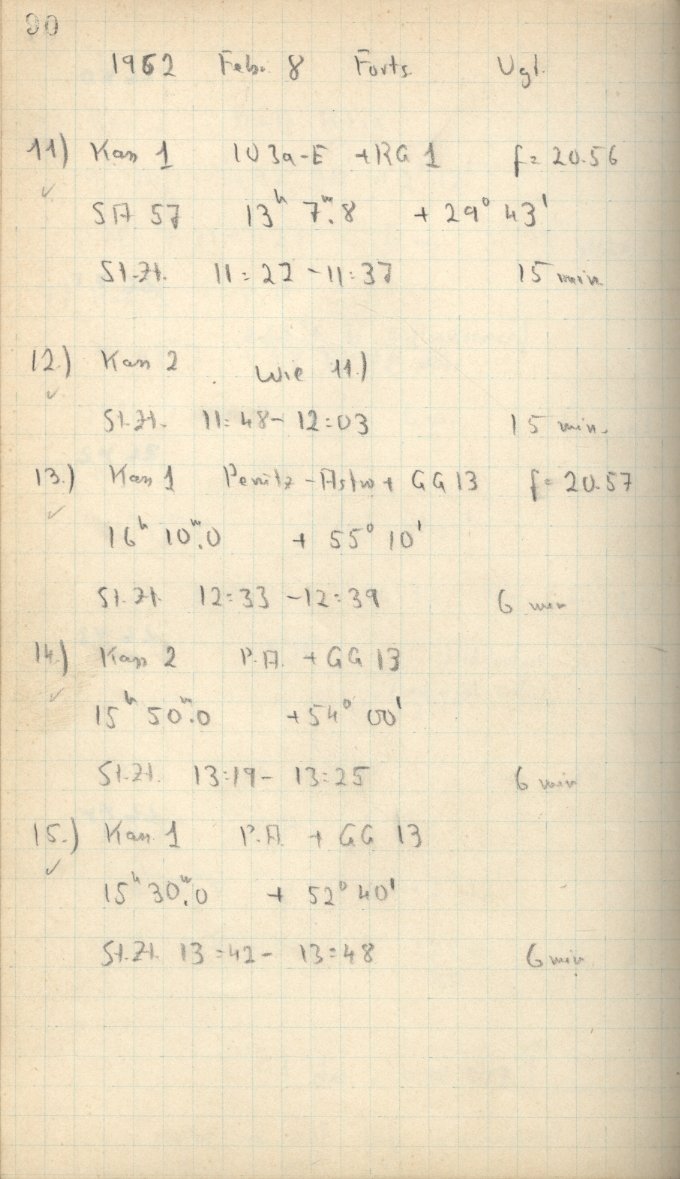 90
1962 Feb. 8 Forts. Vgl.
11) Kas 1 103a-E + RG 1 f = 20.56
✓
SA 57 13ʰ 7ᵐ.8 + 29° 43'
St.Zt. 11:22 - 11:37 15 min.
12.) Kas 2 Wie 11.)
✓
St.Zt. 11:48 - 12:03 15 min.
13.) Kas 1 Perutz-Astro + GG 13 f = 20.57
✓
16ʰ 10ᵐ.0 + 55° 10'
St.Zt. 12:33 - 12:39 6 min
14.) Kas 2 P.A. + GG 13
✓
15ʰ 50ᵐ.0 + 54° 00'
St.Zt. 13:19 - 13:25 6 min
15.) Kas. 1 P.A. + GG 13
✓
15ʰ 30ᵐ.0 + 52° 40'
St.Zt. 13:42 - 13:48 6 min